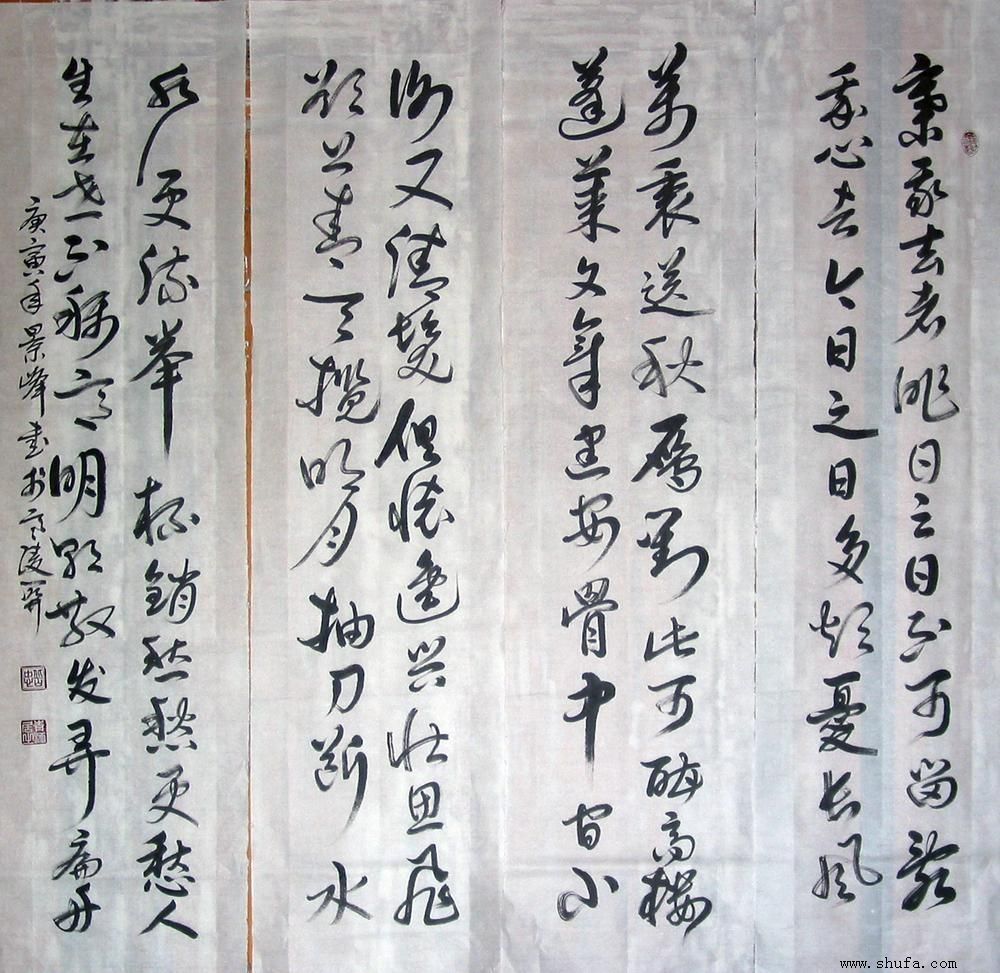 棄我去者昨日之日不可留亂
我心者今日之日多烦憂长風
萬裏送秋雁對此可酣高樓
蓬莱文章建安骨中间小
謝又清髮俱懷逸興壮思飛
欲上青天攬明月抽刀斷水
水更流舉杯銷愁愁更愁人
生在世不稱意明朝散发弄扁舟
庚寅年景峰書於高陵
www.shufa.com